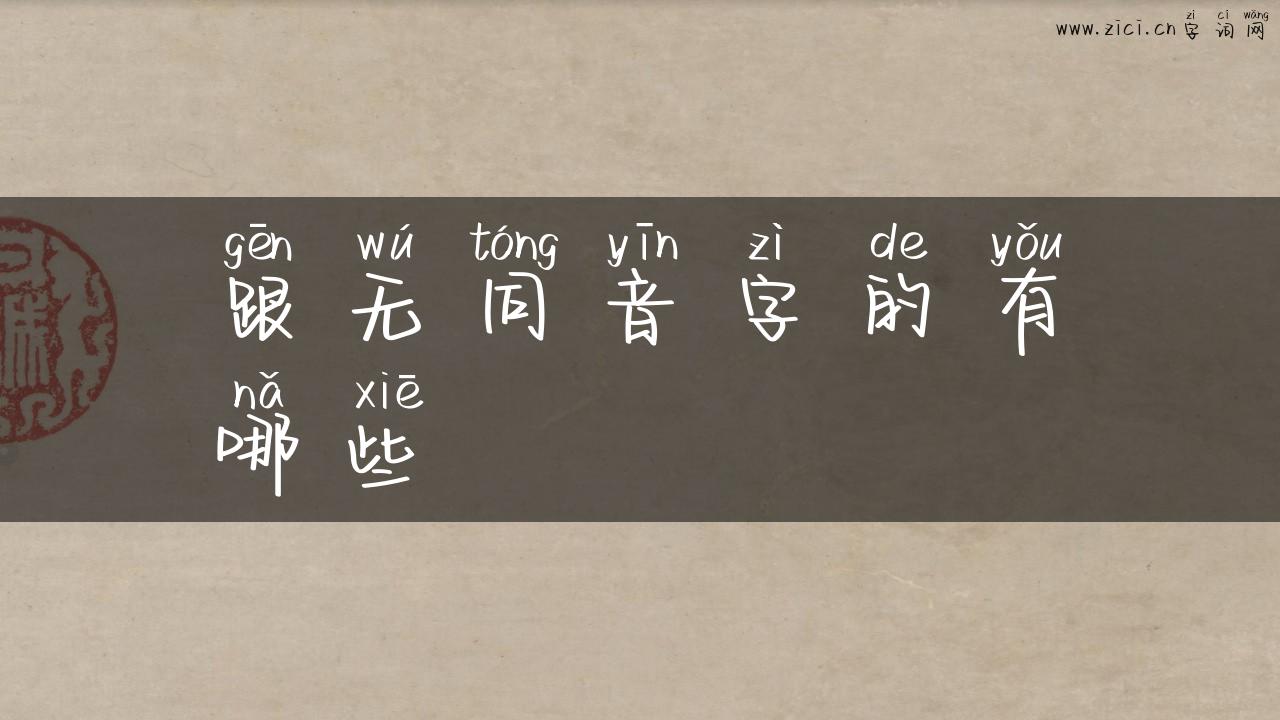 zì cí wǎng
www.zici.cn 字 词 网
gēn wú tóng yīn zì de yǒu
跟 无 同 音 字 的 有
nǎ xiē
哪 些